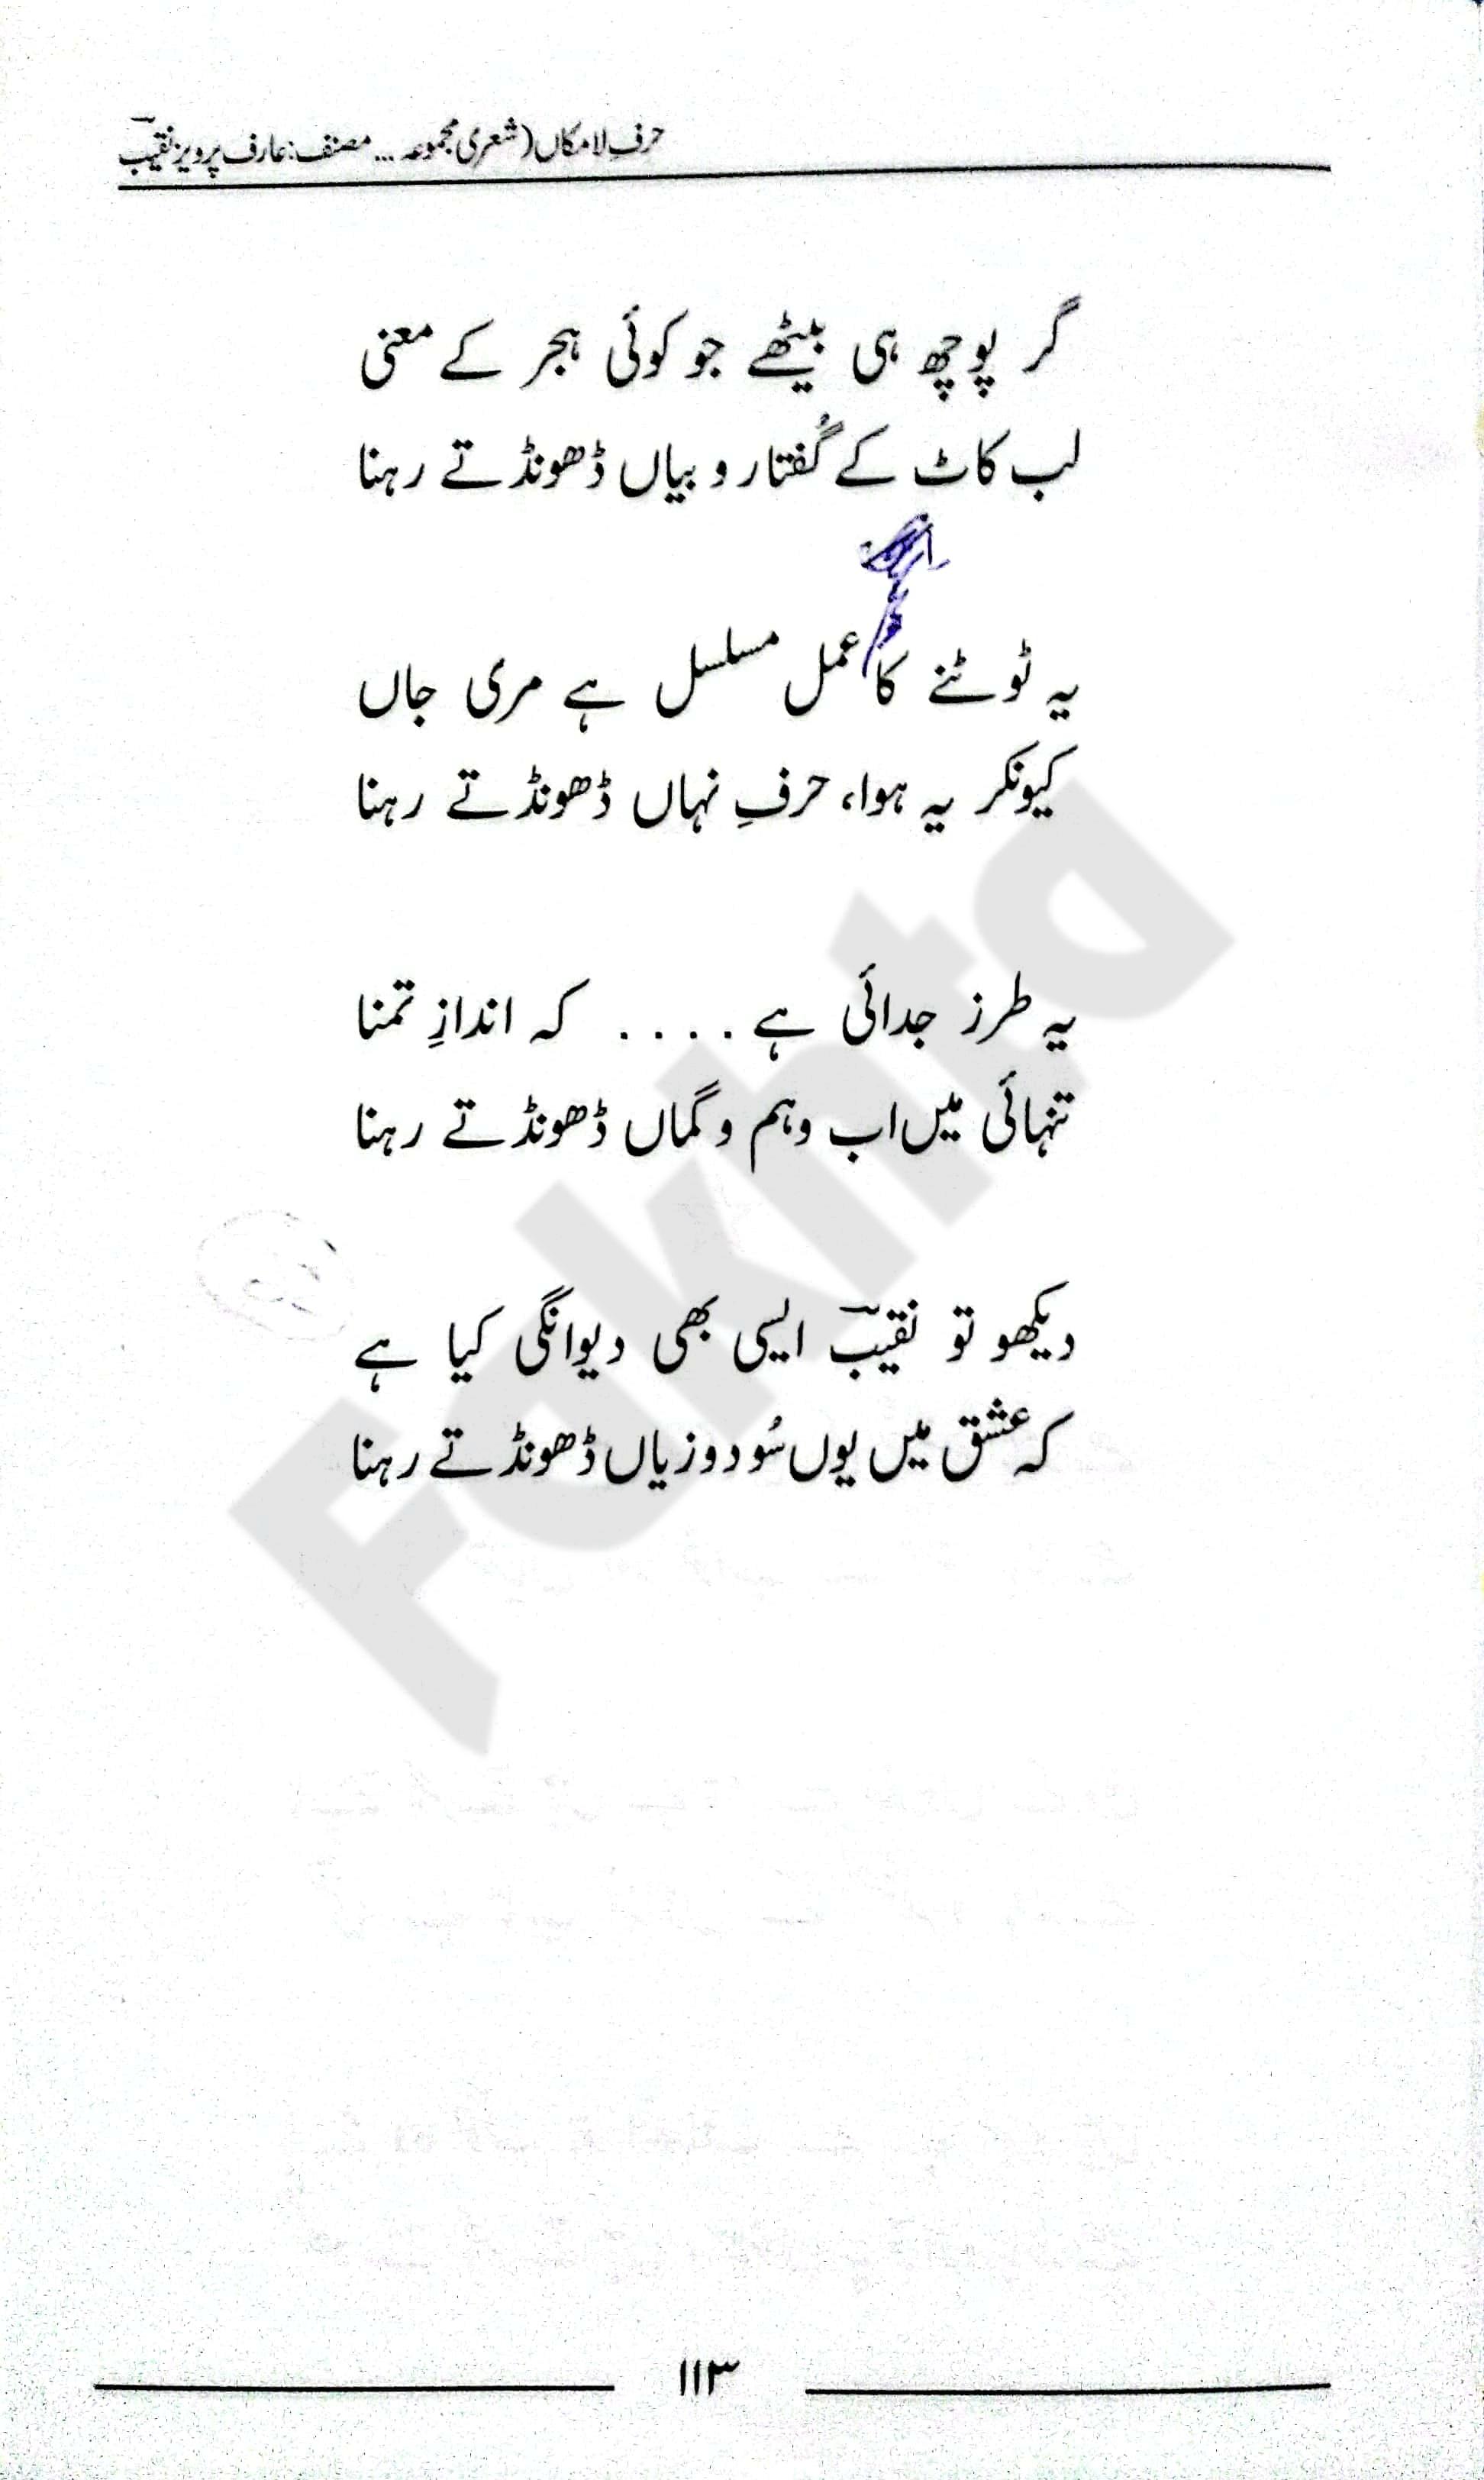 حرفِ لامکاں (شعری مجموعہ ... مصنف: عارف پرویز نقیبؔ
گر پوچھ ہی بیٹھے جو کوئی ہجر کے معنی
لب کاٹ کے گُفتار و بیاں ڈھونڈتے رہنا
یہ ٹوٹنے کا عمل مسلسل ہے مری جاں
کیونکر یہ ہوا، حرفِ نہاں ڈھونڈتے رہنا
یہ طرز جدائی ہے .... کہ اندازِ تمنا
تنہائی میں اب وہم و گماں ڈھونڈتے رہنا
دیکھو تو نقیبؔ ایسی بھی دیوانگی کیا ہے
کہ عشق میں یوں سُود و زیاں ڈھونڈتے رہنا
Fakhta
۱۱۳